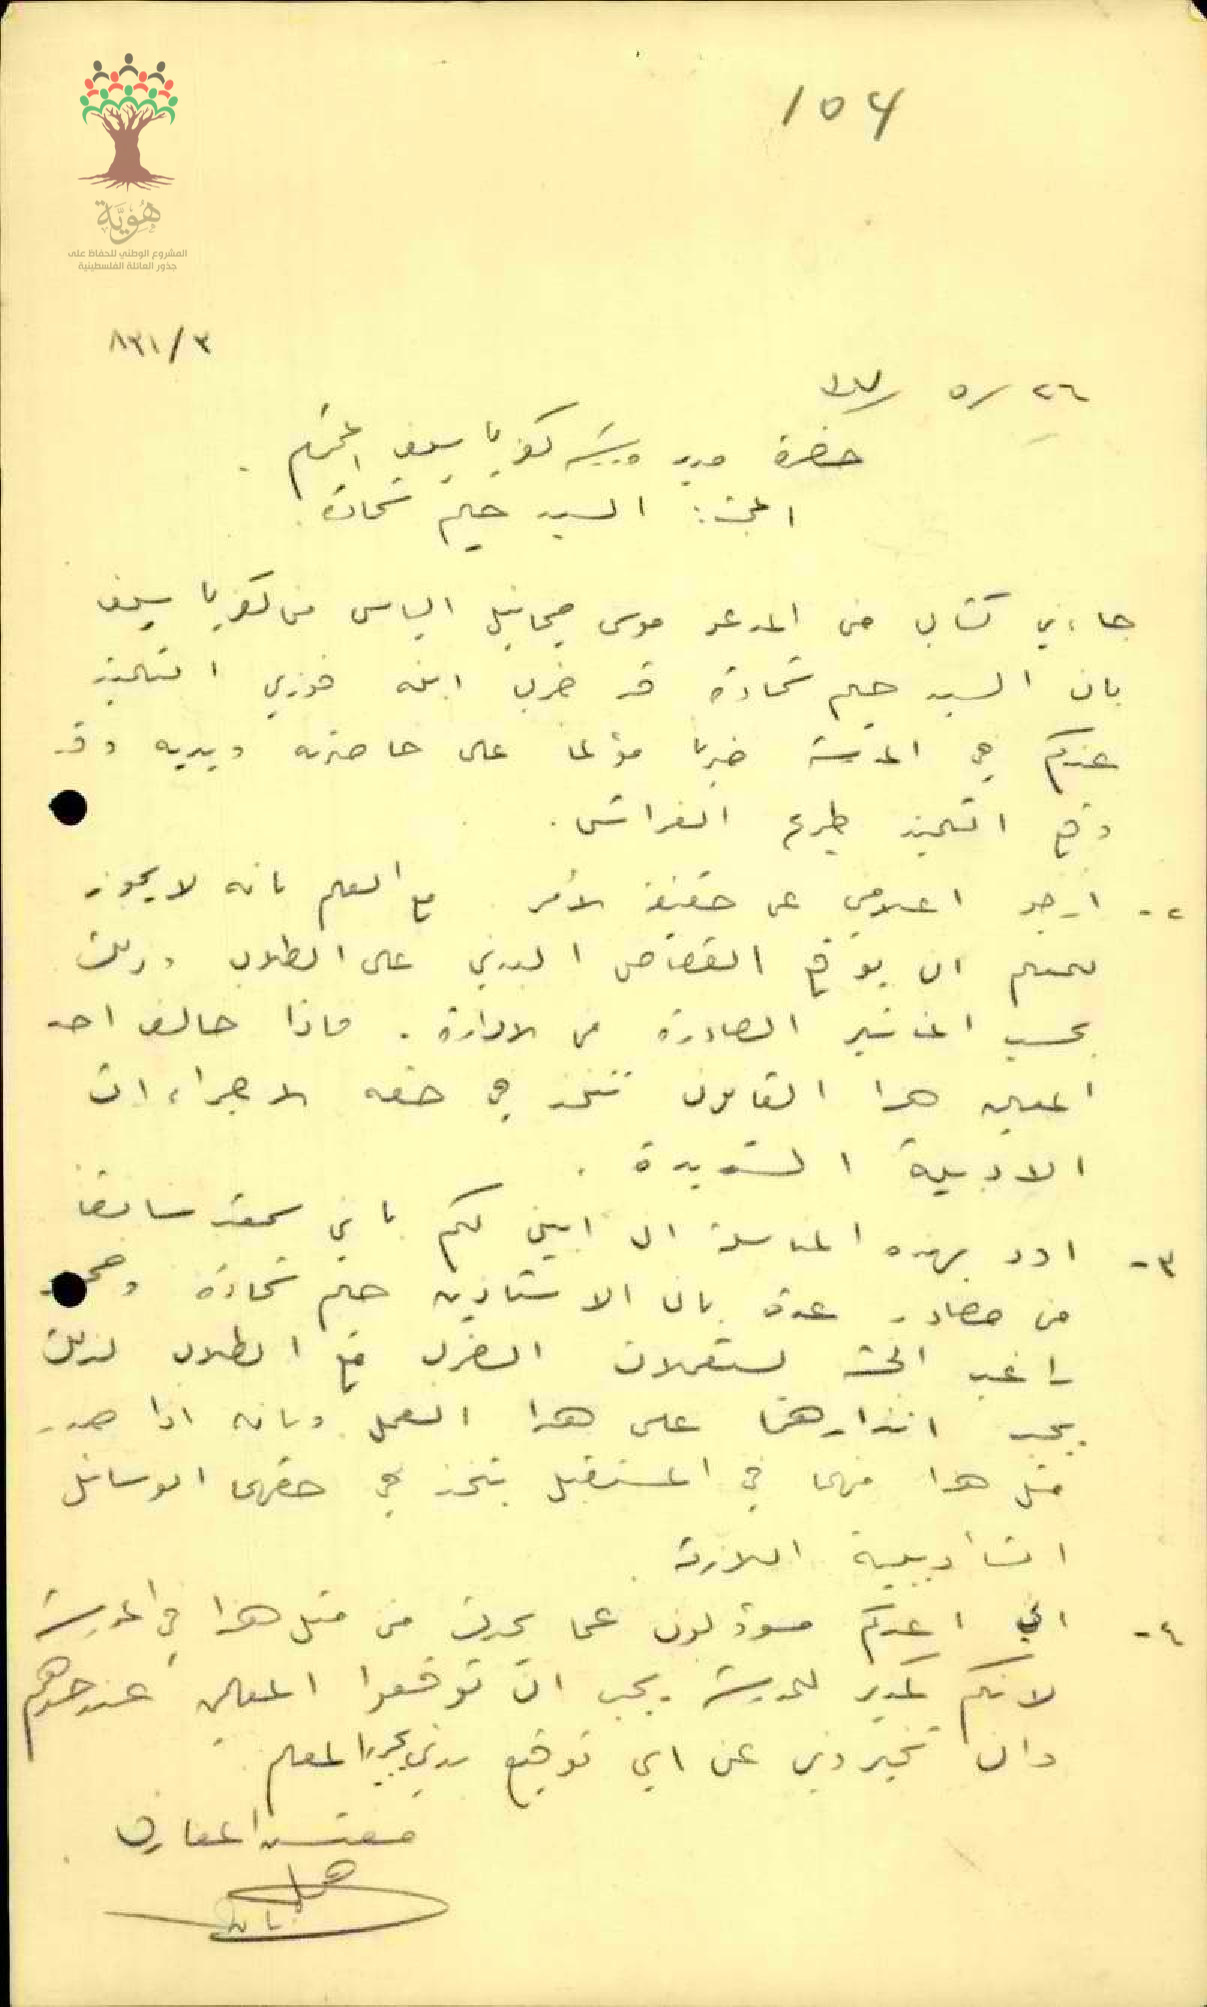 104
هُوِيَّة
المشروع الوطني للحفاظ على
جذور العائلة الفلسطينية
٨٣١/٣
٢٦ /٥
حضرة مدير مدرسة كفر ياسيف المحترم .
المبحث: السيد حليم شحادة
جاءني كتاب من المدعو موسى ميخائيل الياس من كفر ياسيف
بان السيد حليم شحادة قد ضرب ابنه فوزي التلميذ
عندكم في المدرسة ضربا مؤلما على خاصرته ويديه وقد
وقع التلميذ طريح الفراش .
٢- ارجو اعلامي عن حقيقة الامر مع العلم بانه لا يجوز
لمعلم ان يوقع القصاص البدني على الطلاب وذلك
بحسب المناشير الصادرة من الادارة . فاذا خالف احد
المعلمين هذا القانون تتخذ في حقه الاجراءات
الادبية الشديدة .
٣- اود بهذه المناسبة ان ابين لكم بانني سمعت سابقا
من مصادر عدة بان الاستاذين حليم شحادة و
يستعملان الضرب مع الطلاب لذلك
يجب انذارهما على هذا العمل وبانه اذا صدر
مثل هذا منهما في المستقبل يتخذ في حقهما الوسائل
التأديبية اللازمة .
٤- اني اعدكم مسؤولون عما يحدث من مثل هذا في المدرسة
لانكم كمدير للمدرسة يجب ان توقفوا المعلمين عند حدهم
وان تخبروني عن اي توقيع بدني يجريه المعلم .
مفتش المعارف